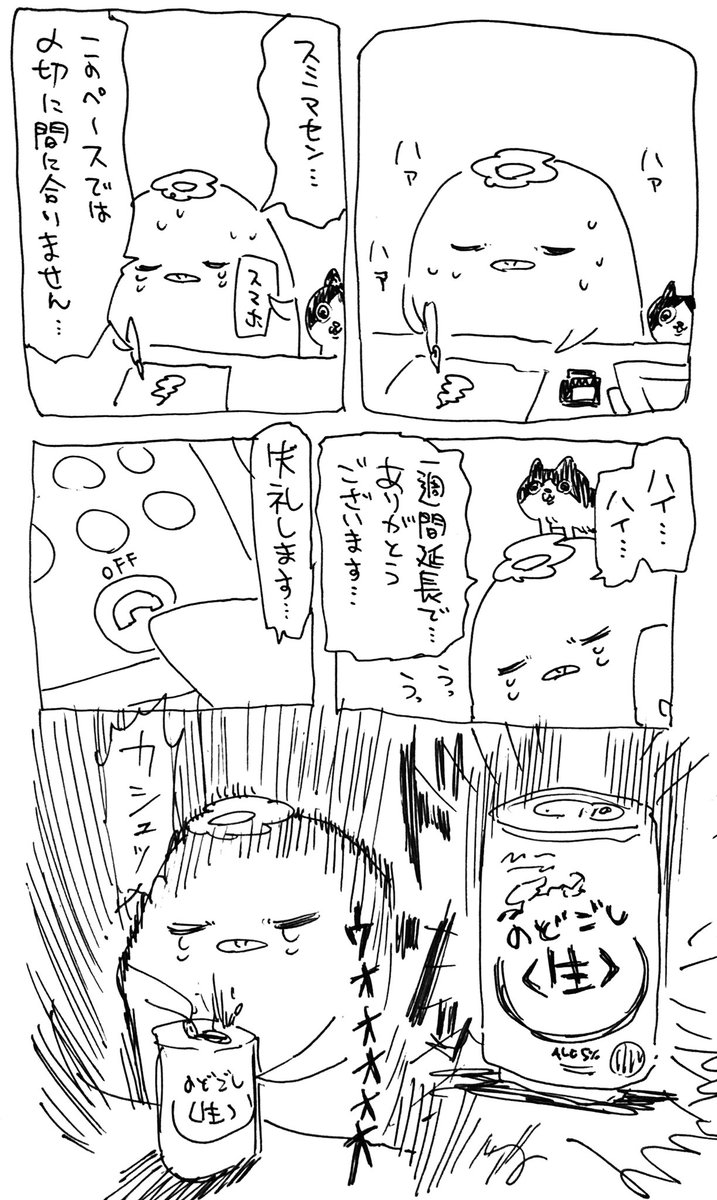 ハァ
ハァ
スミマセン…
スマホ
このペースでは
〆切に間に合いません…
ハイ…
ハイ…
一週間延長で…
ありがとう
ございます…
うっ
うっ
失礼します…
OFF
のどごし
〈生〉
ALC5%
カシュッ
のどごし
〈生〉